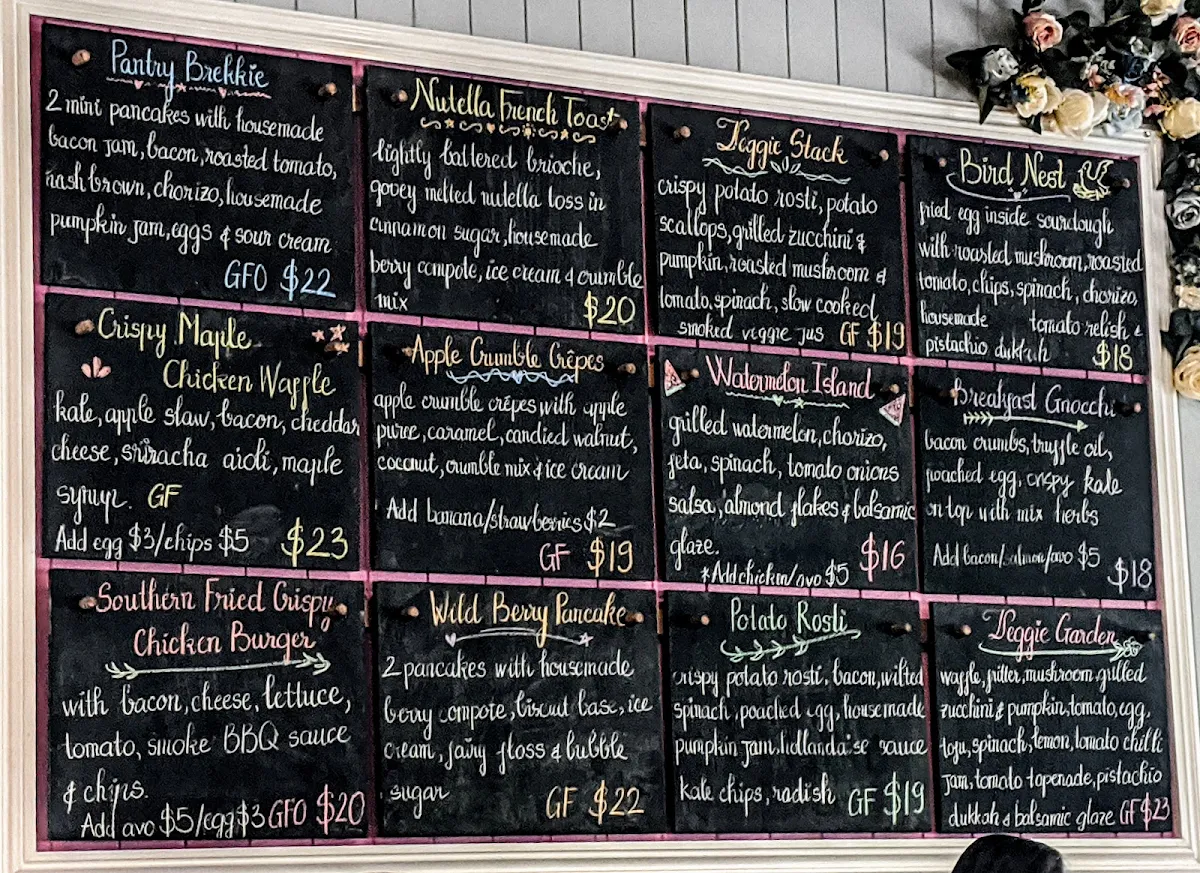 Pantry Brekkie
2 mini pancakes with housemade
bacon jam, bacon, roasted tomato,
hash brown, chorizo, housemade
pumpkin jam, eggs & sour cream
GFO $22
Nutella French Toast
lightly battered brioche,
gooey melted nutella loss in
cinnamon sugar, housemade
berry compote, ice cream & crumble
mix
$20
Veggie Stack
crispy potato rosti, potato
scallops, grilled zucchini &
pumpkin, roasted mushroom &
tomato, spinach, slow cooked
smoked veggie jus GF $19
Bird Nest
fried egg inside sourdough
with roasted mushroom, roasted
tomato, chips, spinach, chorizo,
housemade tomato relish &
pistachio dukkah $18
Crispy Maple
Chicken Waffle
kale, apple slaw, bacon, cheddar
cheese, sriracha aioli, maple
syrup. GF
Add egg $3/chips $5 $23
Apple Crumble Crêpes
apple crumble crêpes with apple
puree, caramel, candied walnut,
coconut, crumble mix & ice cream
Add banana/strawberries $2
GF $19
Watermelon Island
grilled watermelon, chorizo,
feta, spinach, tomato onions
salsa, almond flakes & balsamic
glaze. $16
*Add chicken/avo $5
Breakfast Gnocchi
bacon crumbs, truffle oil,
poached egg, crispy kale
on top with mix herbs
Add bacon/salmon/avo $5
$18
Southern Fried Crispy
Chicken Burger
with bacon, cheese, lettuce,
tomato, smoke BBQ sauce
& chips.
Add avo $5/egg $3 GFO $20
Wild Berry Pancake
2 pancakes with housemade
berry compote, biscuit base, ice
cream, fairy floss & bubble
sugar GF $22
Potato Rosti
crispy potato rosti, bacon, wilted
spinach, poached egg, housemade
pumpkin jam, hollandaise sauce
kale chips, radish GF $19
Veggie Garden
waffle, fritter, mushroom, grilled
zucchini & pumpkin, tomato, egg,
tofu, spinach, lemon, tomato chilli
jam, tomato topenade, pistachio
dukkah & balsamic glaze GF $23